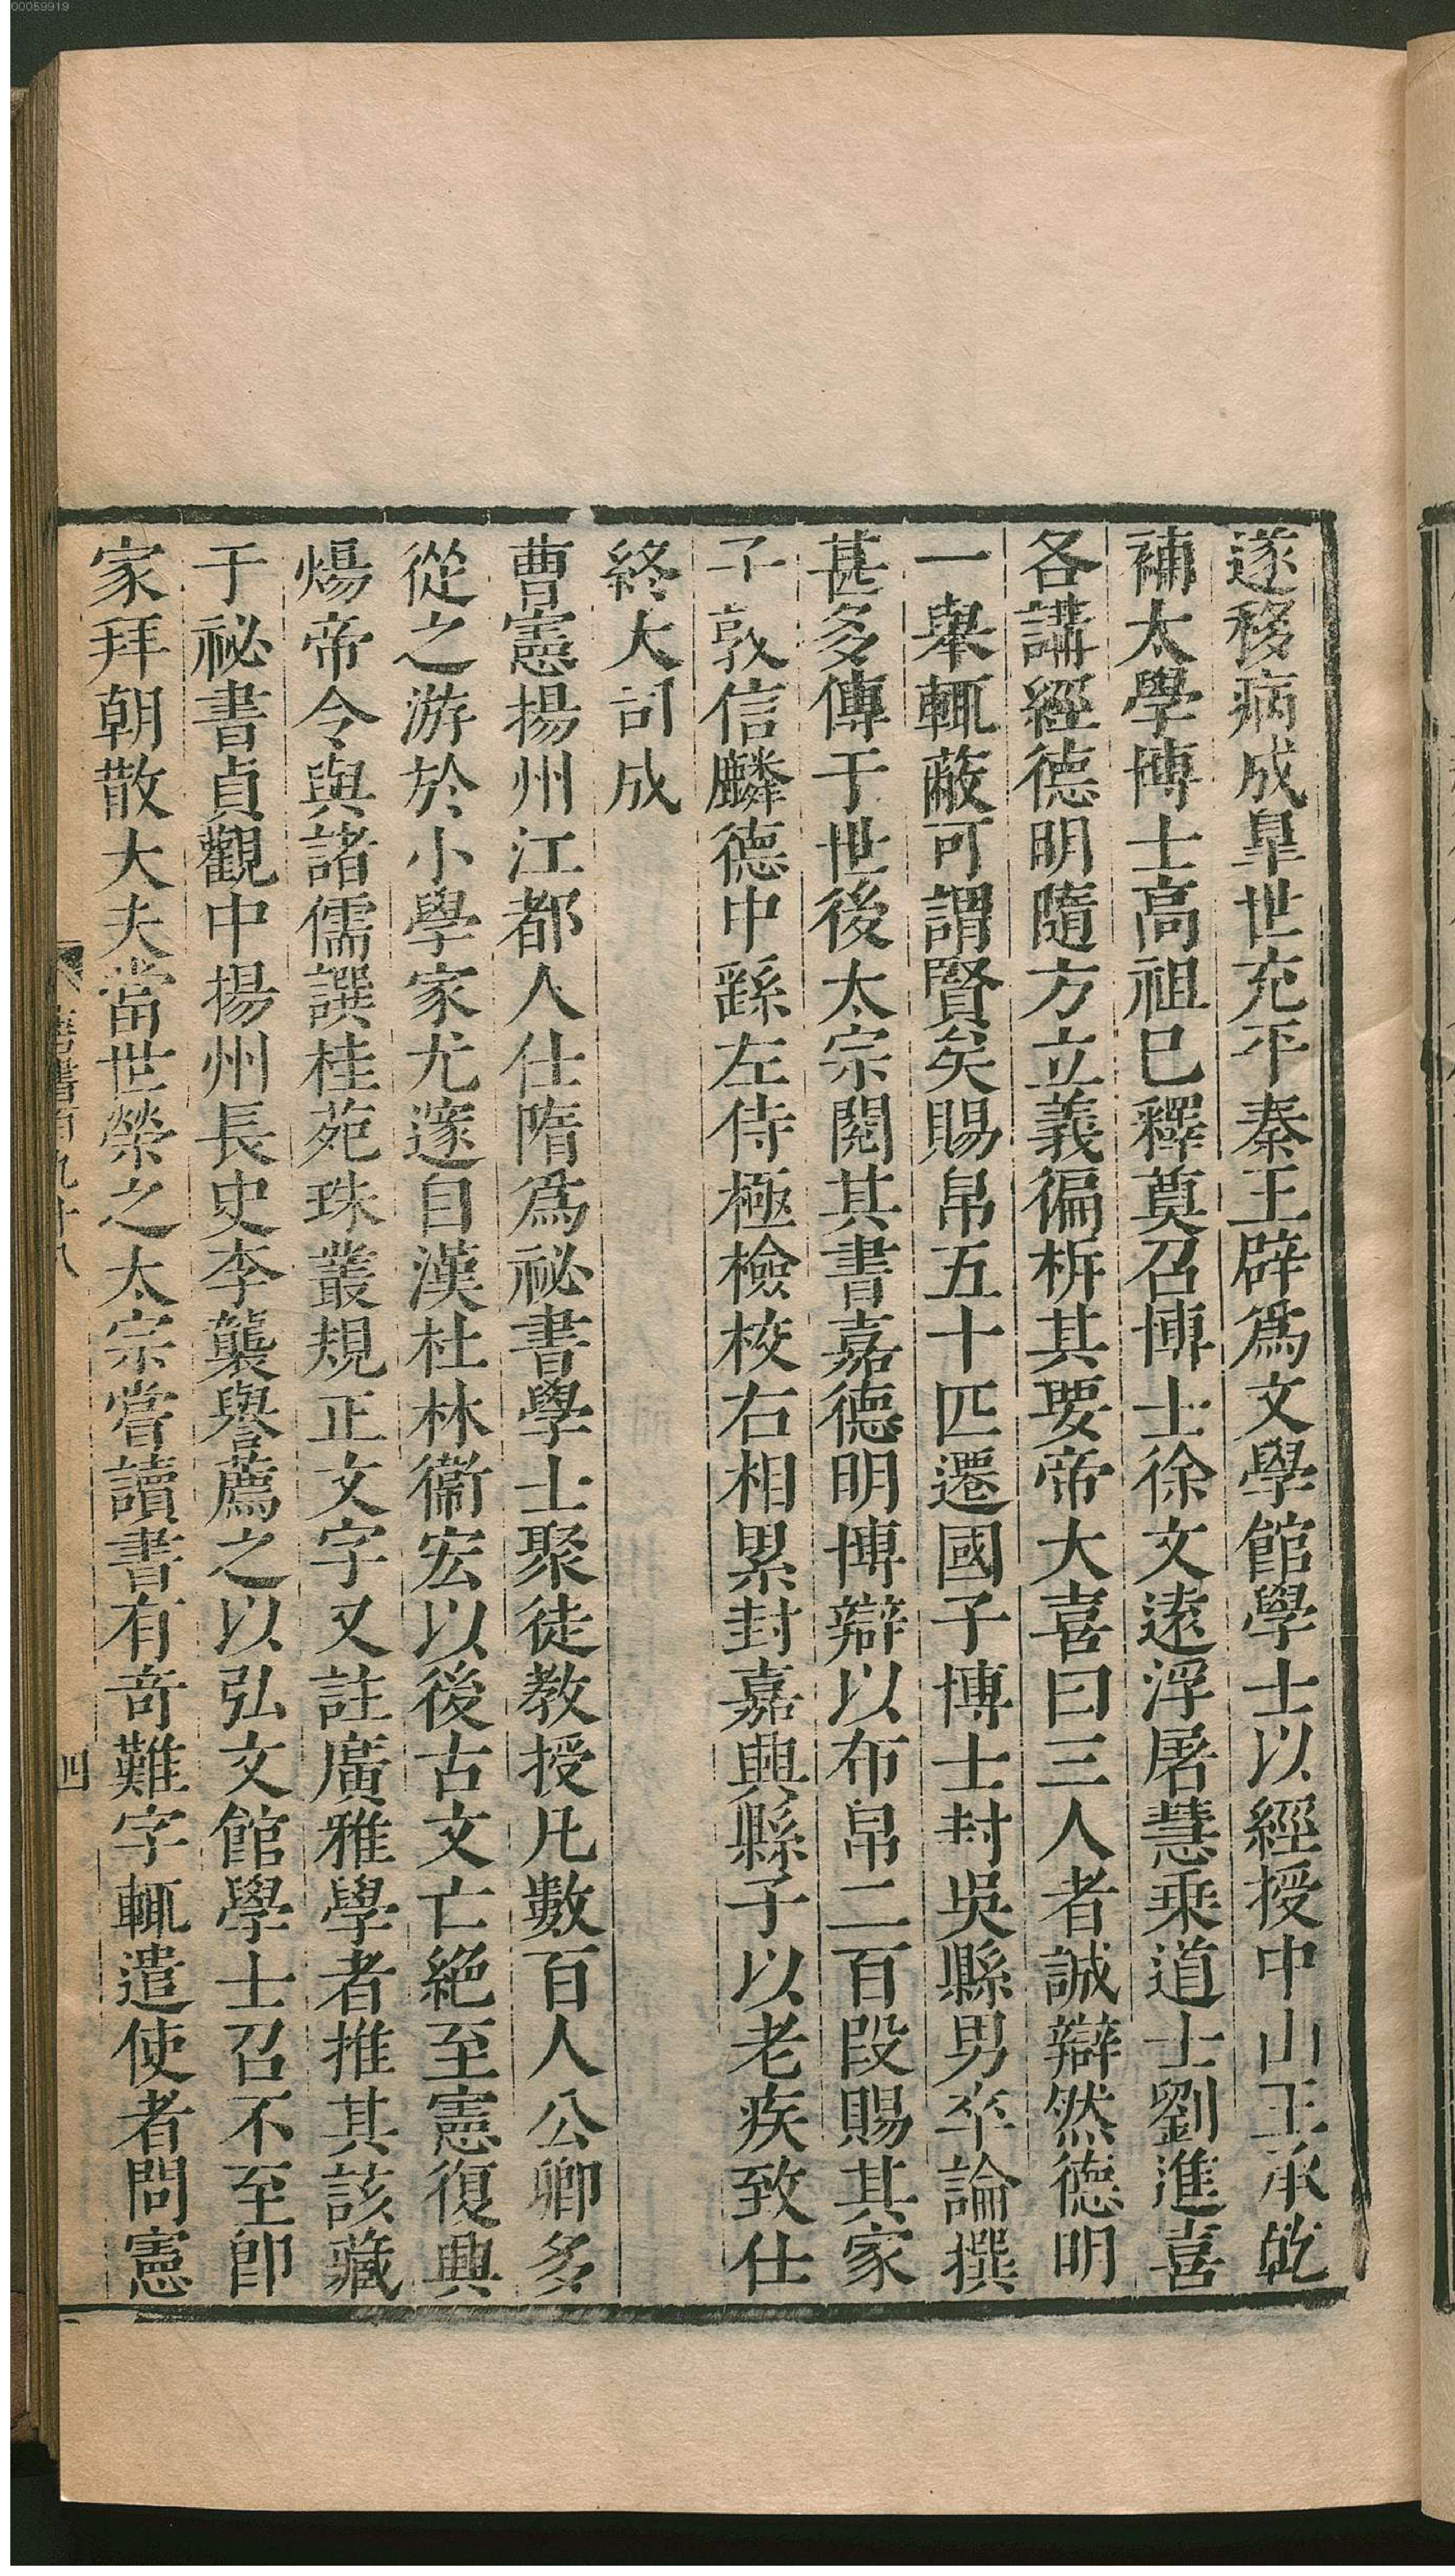 00059919
遂移病成皐世充平秦王辟爲文學館學士以經授中山王承乾
補太學博士高祖已釋奠召博士徐文遠浮屠慧乘道士劉進喜
各講經德明隨方立義徧析其要帝大喜曰三人者誠辯然德明
一舉輒蔽可謂賢矣賜帛五十匹遷國子博士封吳縣男卒論撰
甚多傳于世後太宗閱其書嘉德明博辯以布帛二百段賜其家
子敦信麟德中繇左侍極檢校右相累封嘉興縣子以老疾致仕
終大司成
曹憲揚州江都人仕隋爲祕書學士聚徒教授凡數百人公卿多
從之游於小學家尤邃自漢杜林衞宏以後古文亡絕至憲復興
煬帝令與諸儒譔桂苑珠叢規正文字又註廣雅學者推其該藏
于祕書貞觀中揚州長史李襲譽薦之以弘文館學士召不至卽
家拜朝散大夫當世榮之太宗嘗讀書有奇難字輒遣使者問憲
唐書百九十八
四